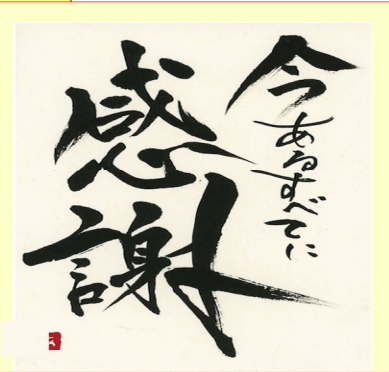 今あるすべてに
感謝